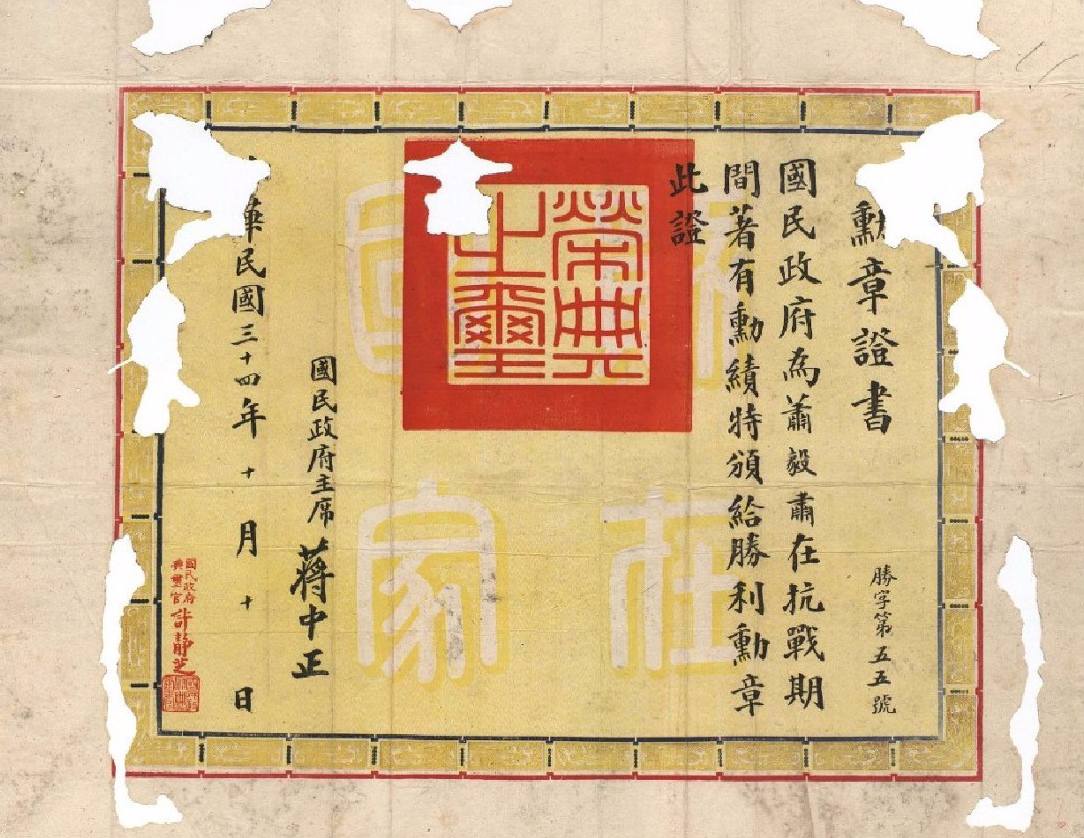 勲章證書
勝字第五五號
國民政府為蕭毅肅在抗戰期
間著有勳績特頒給勝利勳章
此證
榮典之璽
國民政府主席蔣中正
華民國三十四年十月十日
國民政府
典璽官許靜芝
在
國家